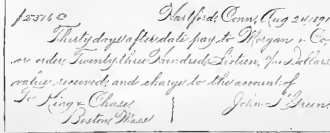 $2316 00 Hartford, Conn, Aug 24, 189
Thirty days after date pay to Morgan & Co.
or order, Twenty three Hundred Sixteen, Dollars,
value received, and charge to the account of
To King & Chase, John S. Green
Boston, Mass.